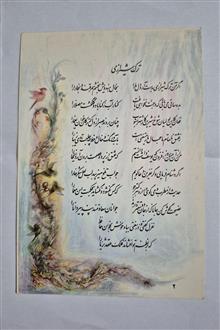 ترک شیرازی
اگر آن ترک شیرازی بدست آرد دل ما را بخال هندویش بخشم سمرقند و بخارا را
بده ساقی می باقی که در جنت نخواهی یافت کنار آب رکناباد و گلگشت مصلا را
فغان کاین لولیان شوخ شیرین کار شهر آشوب چنان بردند صبر از دل که ترکان خوان یغما را
ز عشق ناتمام ما جمال یار مستغنی است بآب و رنگ و خال و خط چه حاجت روی زیبا را
من از آن حسن روزافزون که یوسف داشت دانستم که عشق از پرده عصمت برون آرد زلیخا را
اگر دشنام فرمائی و گر نفرین دعا گویم جواب تلخ میزیبد لب لعل شکرخا را
حدیث از مطرب و می گو و راز دهر کمتر جو که کس نگشود و نگشاید بحکمت این معما را
نصیحت گوش کن جانا که از جان دوستتر دارند جوانان سعادتمند پند پیر دانا را
غزل گفتی و در سفتی بیا و خوش بخوان حافظ
که بر نظم تو افشاند فلک عقد ثریا را
۲